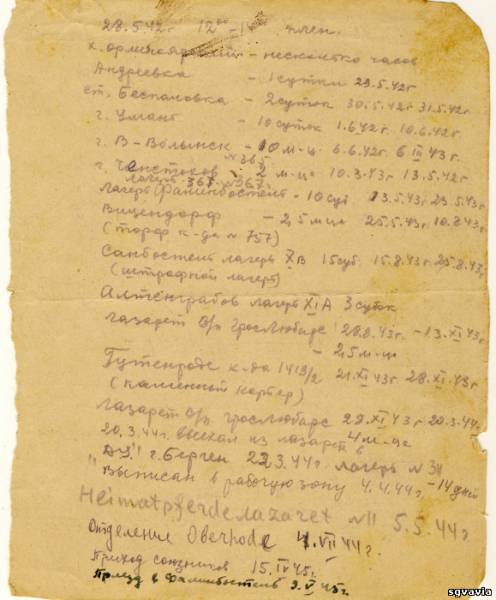 28.5.42г 12⁰⁰ - плен.
х. - несколько часов
Андреевка - 1 сутки 29.5.42г
ст. Беспаловка - 2 суток 30.5.42г 31.5.42г.
г. Умань - 10 суток 1.6.42г. 10.6.42г.
г. В-Волынск - 10 м-ц. 6.6.42г. 6.III 43г.
№ 365
г. Ченстохов - 2 м-ца 10.3.43г 13.5.42г
лагерь 367 №367
лагерь Фалингбостель - 10 сут 13.5.43г 23.5.43г
Вицендорф - 2,5 м-ца 25.5.43г. 10.8.43г
(торф к-да № 757)
Санбостель лагерь X B 15 сут. 15.8.43г. 25.8.43г.
(штрафной лагерь)
Альтенграбов лагерь XI A 3 суток
лазарет В/п Гросслюбарс 28.8.43г. - 13.XI 43г
- 2,5 м-ца
Гутенроде к-да 1419/2 21.XI 43г 28.XI.43г
(каменный карьер)
лазарет В/п Гросслюбарс 28.XI 43г 20.3.44г.
4 м-ца
20.3.44г. выехал из лазарет в
г. Берген 22.3.44г лагерь №
Выписан в рабочую зону 4.4.44г. - 14 дней
Heimatpferdelazaret № 11 5.5.44г
Отделение Oberhode 4.VII 44г.
Приход союзников 15.IV 45г.
Приезд в Фалингбостель 2.V 45г.
sgvavia